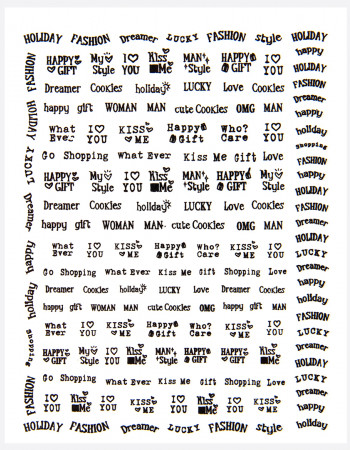 HOLIDAY FASHION Dreamer LUCKY FASHION style HOLIDAY
HAPPY GIFT My Style I YOU Kiss Me MAN Style HAPPY GIFT I YOU happy
FASHION
Dreamer Cookies holiday LUCKY Love Cookies FASHION
Dreamer
HOLIDAY happy gift WOMAN MAN cute Cookies OMG MAN happy
What Ever I YOU KISS ME Happy Gift Who? Care I YOU holiday
Shopping
LUCKY Go Shopping What Ever Kiss Me Gift Love FASHION
HAPPY GIFT My Style I YOU Kiss Me MAN Style HAPPY GIFT I YOU happy
HOLIDAY
Dreamer Dreamer Cookies holiday LUCKY Love Cookies FASHION
happy gift WOMAN MAN cute Cookies OMG MAN Dreamer
HOLIDAY
happy What Ever I YOU KISS ME Happy Gift Who? Care KISS ME I YOU LUCKY
Go Shopping What Ever Kiss Me Gift Shopping Love Dreamer
holiday Dreamer Cookies holiday LUCKY Love Cookies Dreamer happy
holiday
happy gift WOMAN MAN cute Cookies OMG happy gift MAN FASHION
Shopping What Ever I YOU KISS ME Happy Gift Who? Care KISS ME I YOU LUCKY
HAPPY GIFT My Style I YOU Kiss Me MAN Style HAPPY GIFT HAPPY GIFT Kiss Me Dreamer
HOLIDAY
FASHION Go Shopping What Ever Kiss Me Gift Shopping Love LUCKY
I YOU Kiss Me I YOU KISS ME I YOU Kiss Me I YOU KISS ME Dreamer
happy
HOLIDAY FASHION Dreamer LUCKY FASHION style HOLIDAY